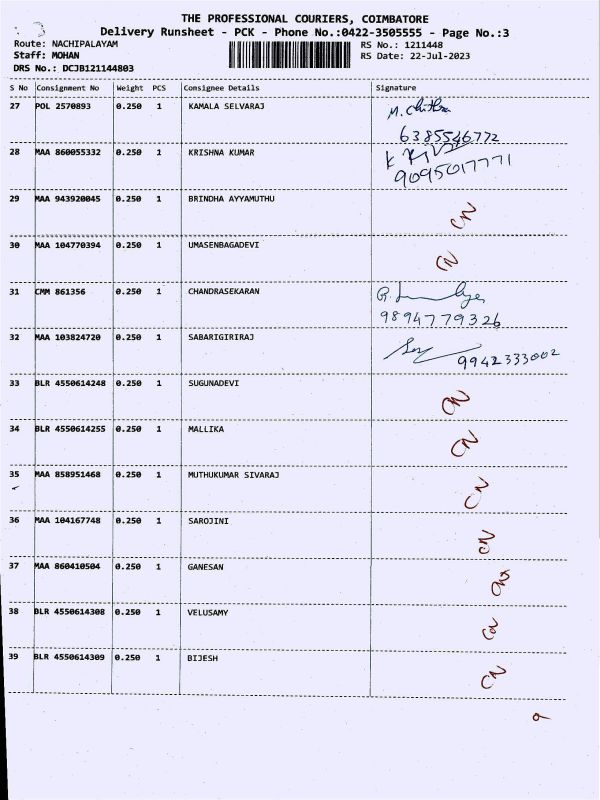 THE PROFESSIONAL COURIERS, COIMBATORE
Delivery Runsheet - PCK - Phone No.:0422-3505555 - Page No.:3
Route: NACHIPALAYAM RS No.: 1211448
Staff: MOHAN RS Date: 22-Jul-2023
DRS No.: DCJB121144803
S No Consignment No Weight PCS Consignee Details Signature
27 POL 2570893 0.250 1 KAMALA SELVARAJ M. Chithra
6385546772
28 MAA 860055332 0.250 1 KRISHNA KUMAR K
9095017771
29 MAA 943920045 0.250 1 BRINDHA AYYAMUTHU CN
30 MAA 104770394 0.250 1 UMASENBAGADEVI CN
31 CMM 861356 0.250 1 CHANDRASEKARAN
9894779326
32 MAA 103824720 0.250 1 SABARIGIRIRAJ 9942333002
33 BLR 4550614248 0.250 1 SUGUNADEVI CN
34 BLR 4550614255 0.250 1 MALLIKA CN
35 MAA 858951468 0.250 1 MUTHUKUMAR SIVARAJ CN
36 MAA 104167748 0.250 1 SAROJINI CN
37 MAA 860410504 0.250 1 GANESAN CN
38 BLR 4550614308 0.250 1 VELUSAMY CN
39 BLR 4550614309 0.250 1 BIJESH CN
9